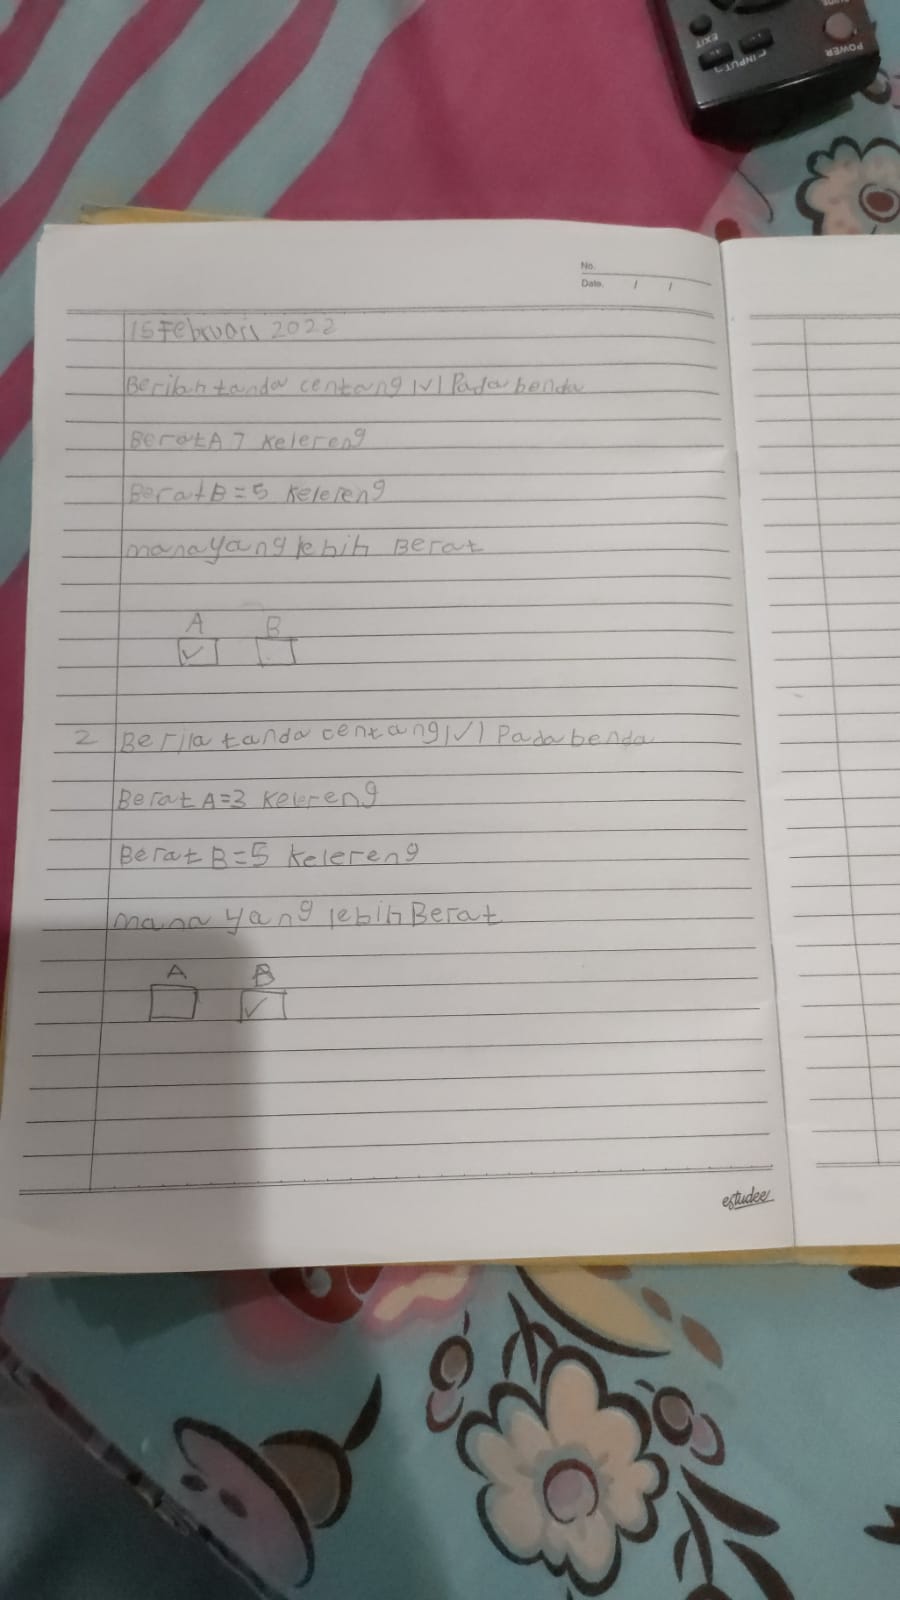 POWER
INPUT
EXIT
No.
Date. / /
15 Februari 2022
Berilah tanda centang |√| Pada benda
Berat A 7 Kelereng
Berat B = 5 Kelereng
mana yang lebih Berat
A B
✓
2 Berila tanda centang |√| Pada benda
Berat A = 3 Kelereng
Berat B = 5 Kelereng
mana yang lebih Berat
A B
✓
estudee